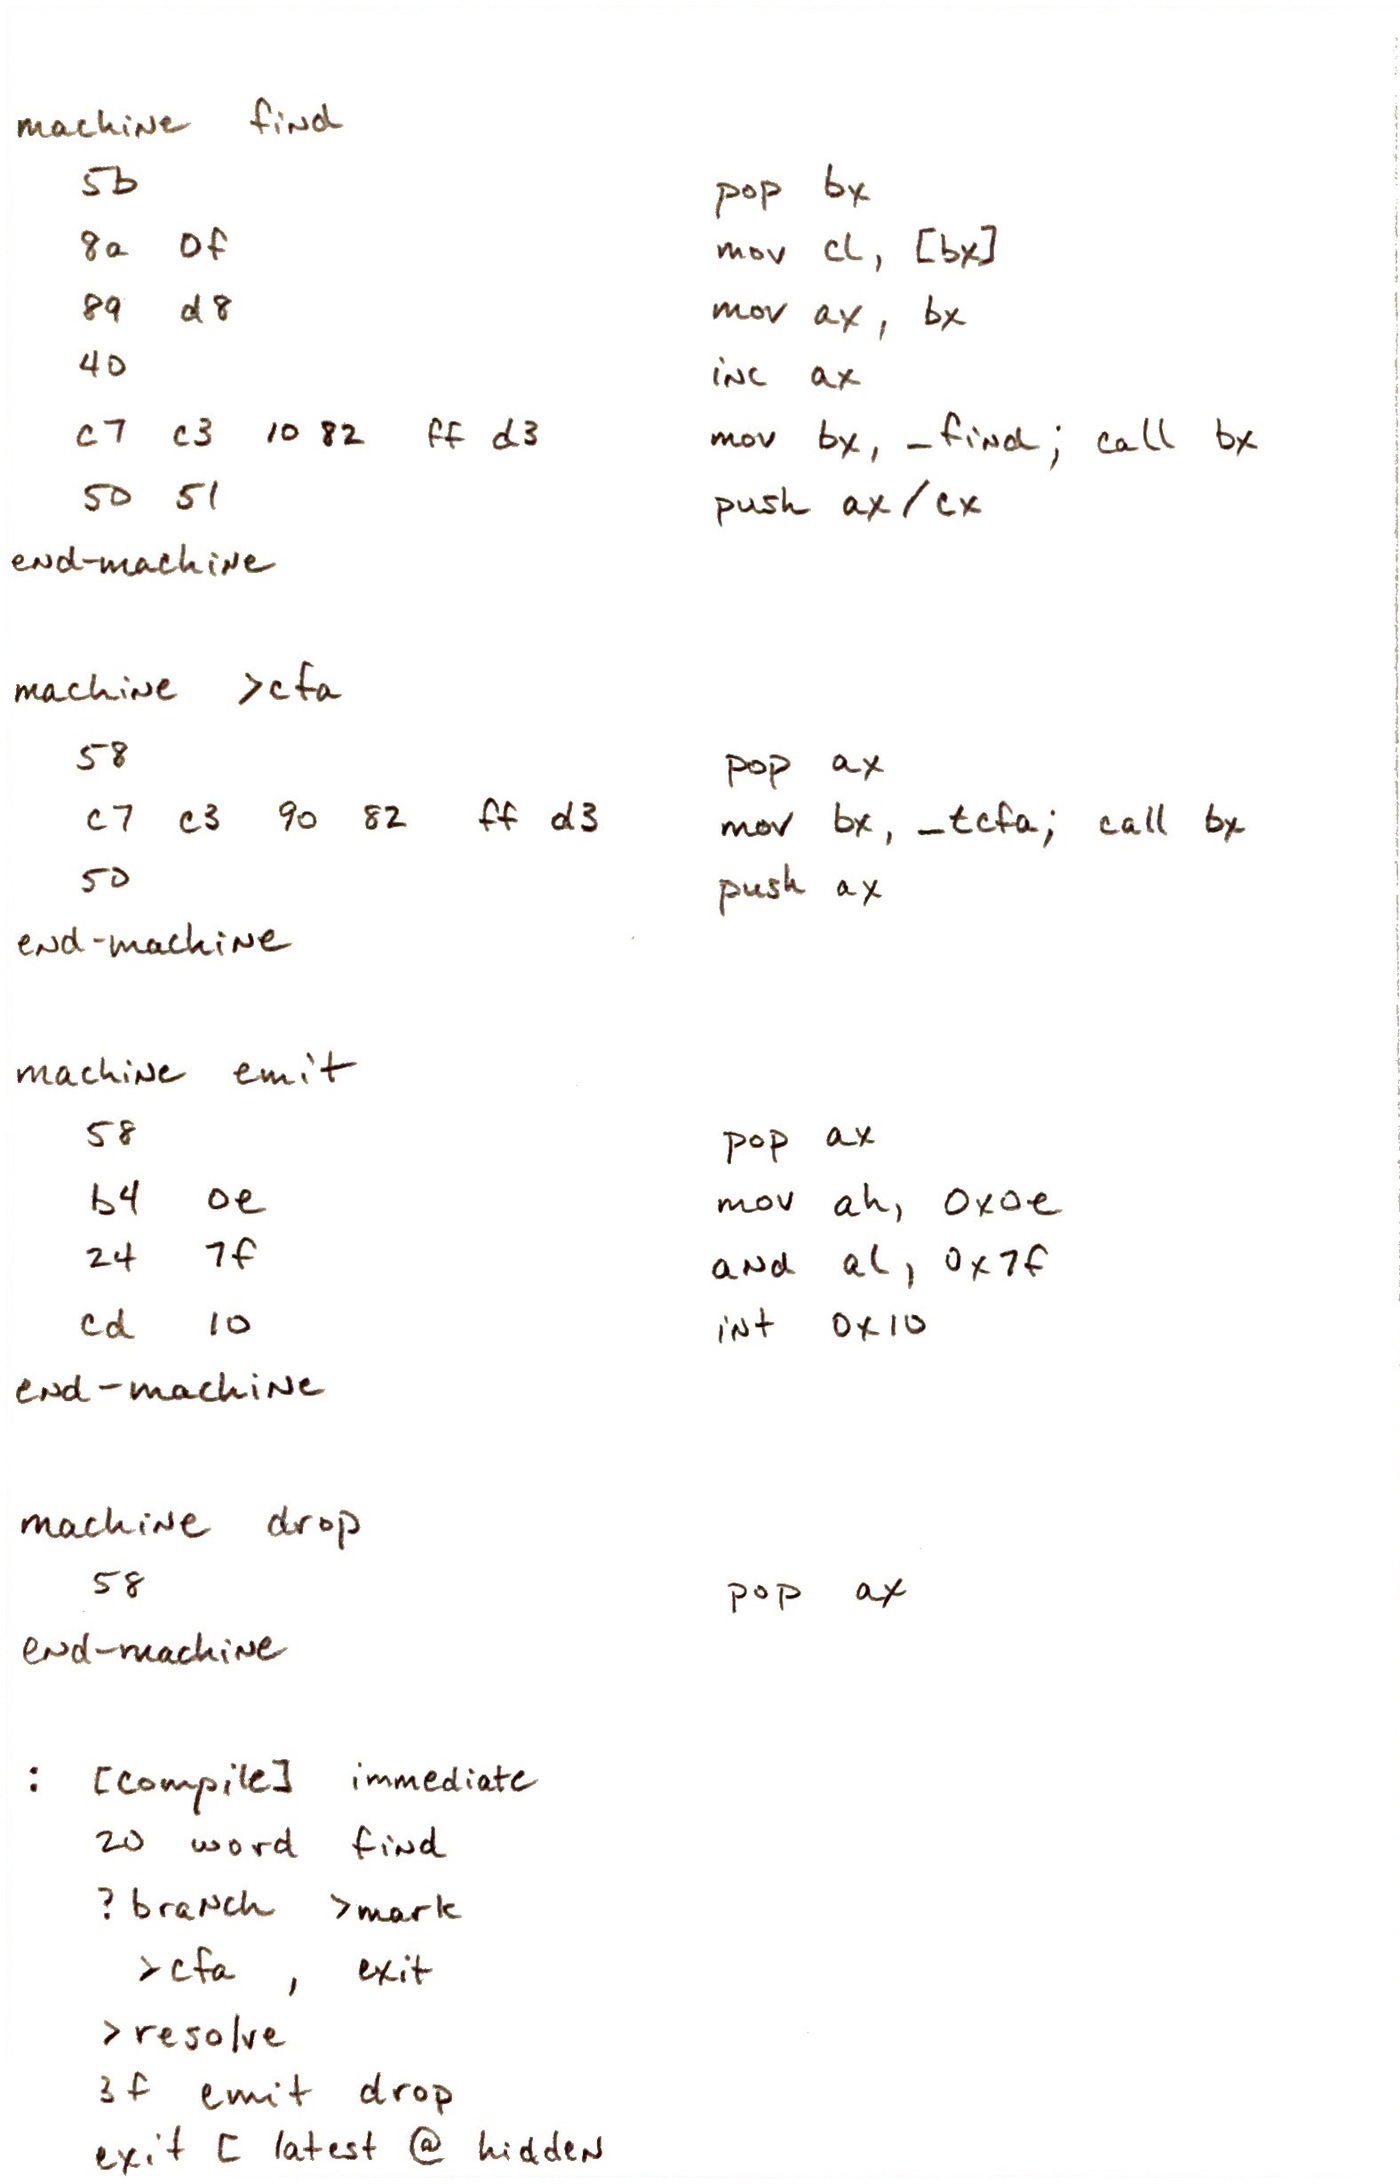 machine find
5b pop bx
8a 0f mov cl, [bx]
89 d8 mov ax, bx
40 inc ax
c7 c3 10 82 ff d3 mov bx, _find; call bx
50 51 push ax/cx
end-machine
machine >cfa
58 pop ax
c7 c3 90 82 ff d3 mov bx, _tcfa; call bx
50 push ax
end-machine
machine emit
58 pop ax
b4 0e mov ah, 0x0e
24 7f and al, 0x7f
cd 10 int 0x10
end-machine
machine drop
58 pop ax
end-machine
: [compile] immediate
20 word find
?branch >mark
>cfa , exit
>resolve
3f emit drop
exit [ latest @ hidden